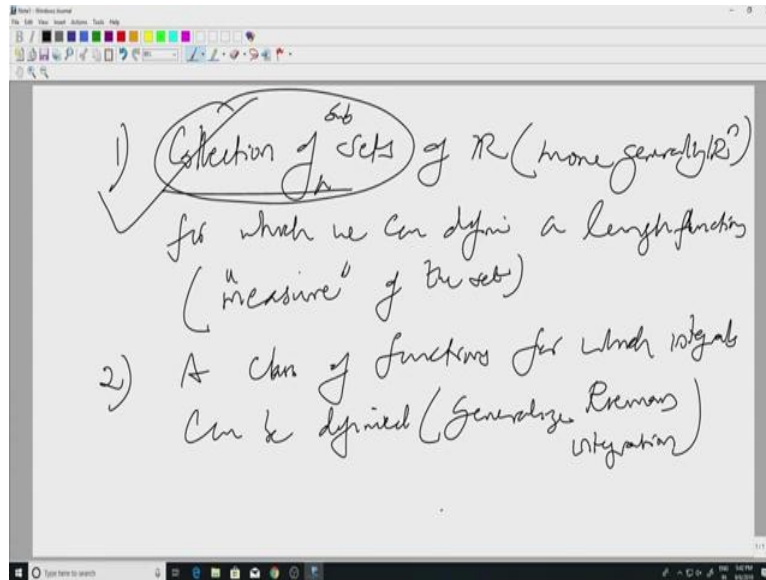 Note1 - Windows Journal
File Edit View Insert Actions Tools Help
1) Collection of subsets of R (more generally R^n)
for which we can define a length function
("measure" of the sets)
2) A class of functions for which integrals
can be defined (Generalize Riemann
integration)
Type here to search
ENG